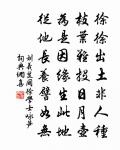 徐徐出土非人種
枝葉難投日月壺
為是因緣生此地
從他長養譬如無
學士咏
詞典網書